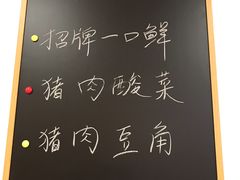 招牌一口鲜
猪肉酸菜
猪肉豆角